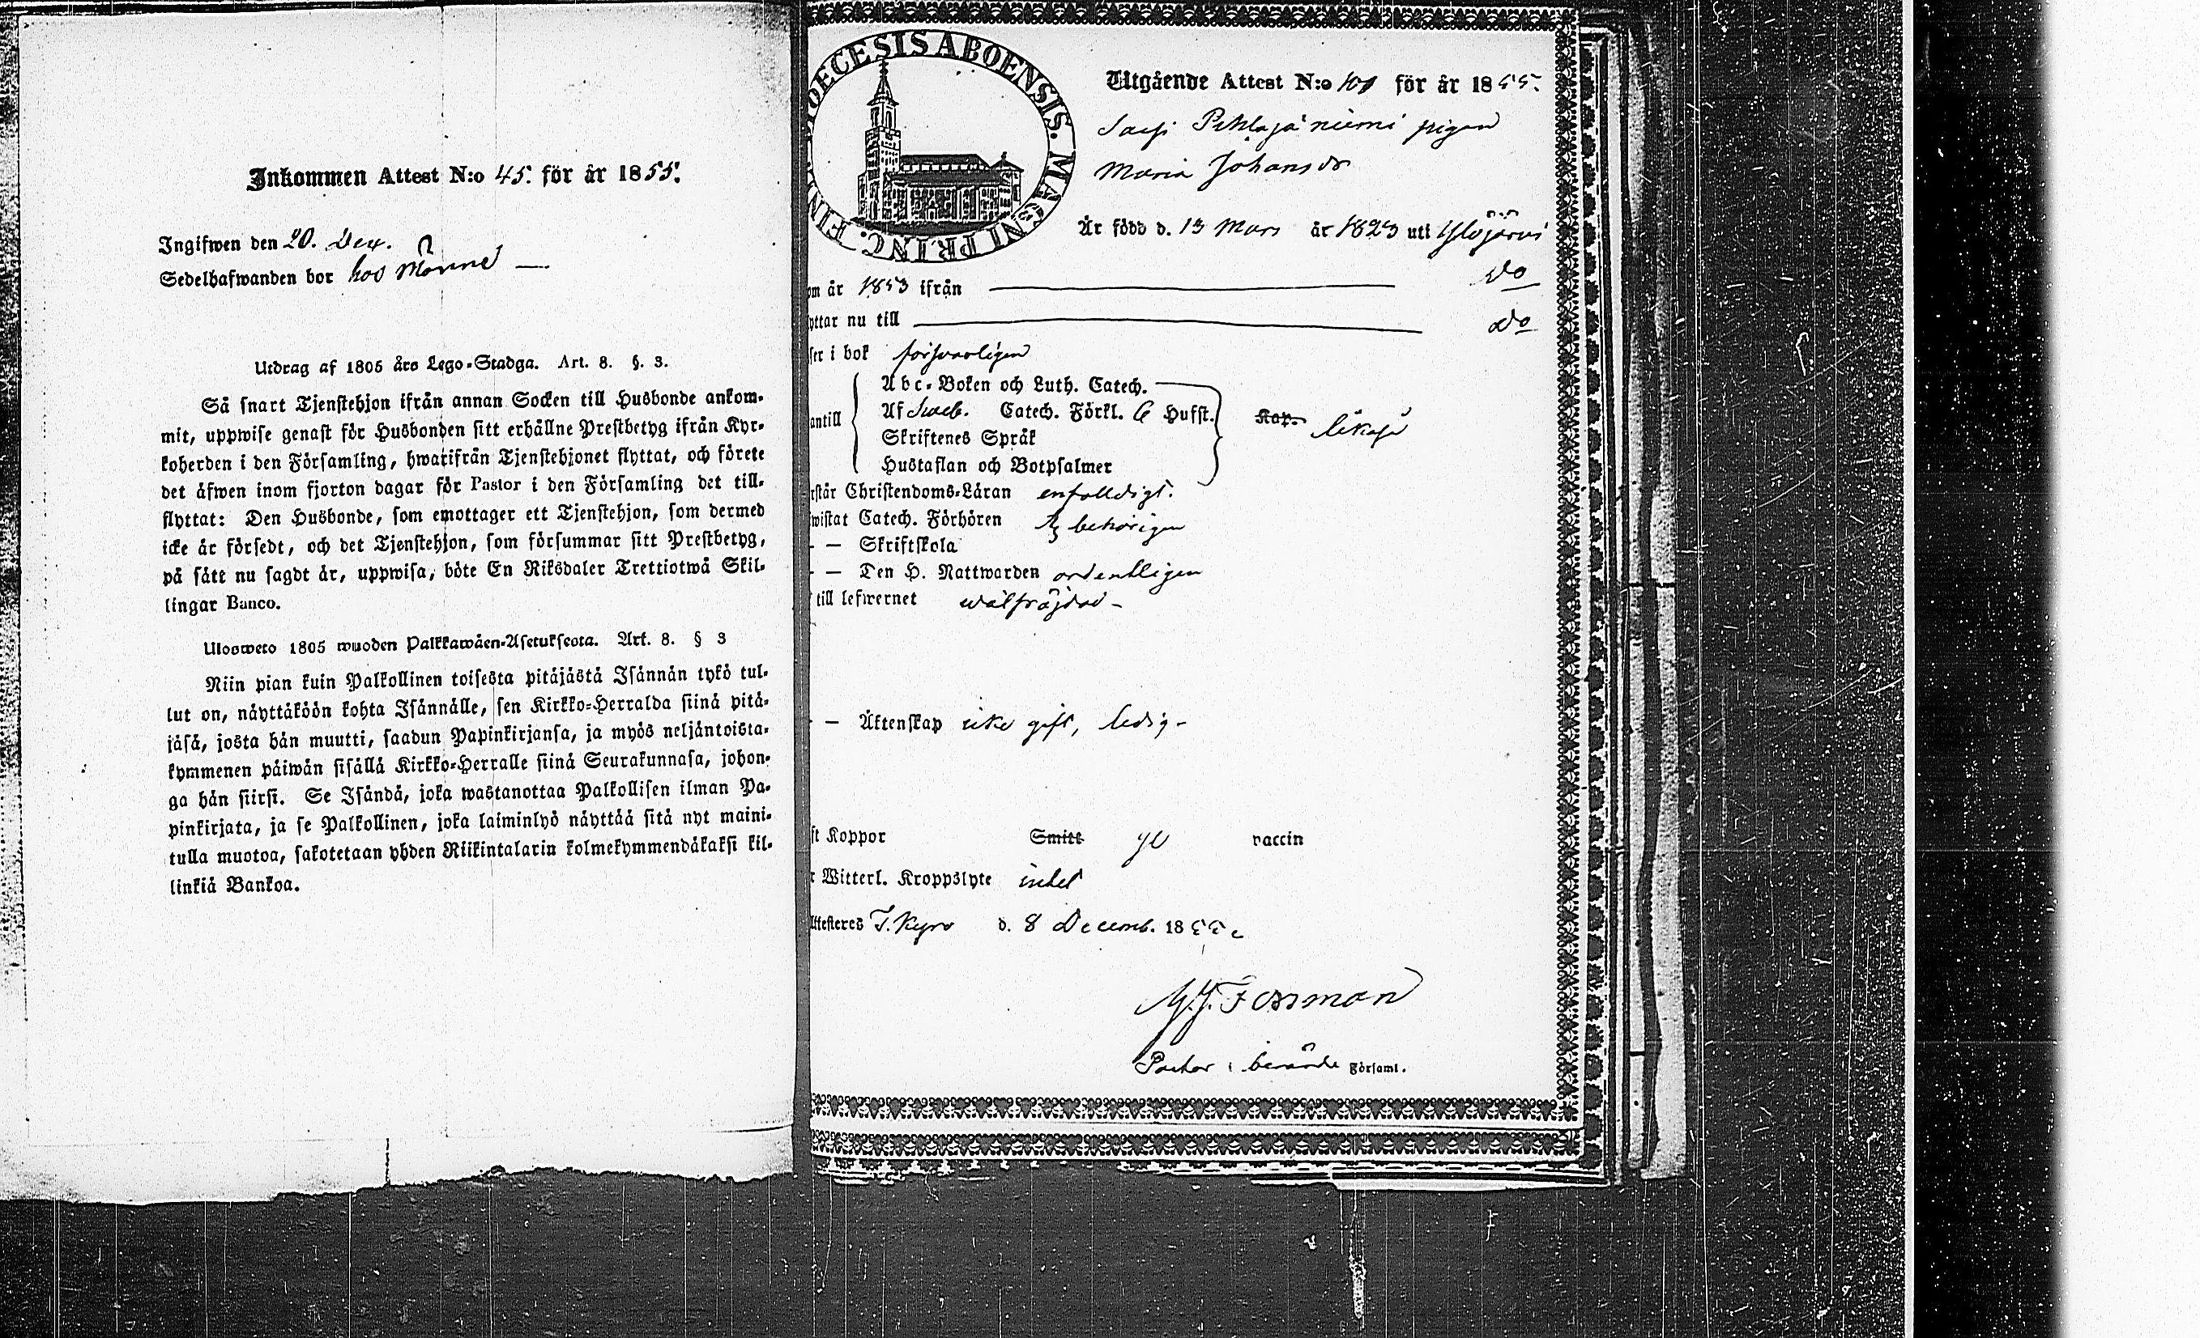 Inkommen Attest N:o 45. för år 1855.
Ingifwen den 20. Dec.
Sedelhafwanden bor hos
Utdrag af 1805 års Lego-Stadga. Art. 8. §. 3.
Så snart Tjenstehjon ifrån annan Socken till Husbonde ankom-
mit, uppwise genast för Husbonden sitt erhållne Prestbetyg ifrån Kyr-
koherden i den Församling, hwarifrån Tjenstehjonet flyttat, och förete
det äfwen inom fjorton dagar för Pastor i den Församling det till-
flyttat: Den Husbonde, som emottager ett Tjenstehjon, som dermed
icke är försedt, och det Tjenstehjon, som försummar sitt Prestbetyg,
på sätt nu sagdt är, uppwisa, böte En Riksdaler Trettiotwå Skil-
lingar Banco.
Ulosweto 1805 wuoden Palkkawäen-Asetuksesta. Art. 8. § 3
Niin pian kuin Palkollinen toisesta pitäjästä Isännän tykö tul-
lut on, näyttäköön kohta Isännälle, sen Kirkko-Herralda siinä pitä-
jäsä, josta hän muutti, saadun Papinkirjansa, ja myös neljäntoista-
kymmenen päiwän sisällä Kirkko-Herralle siinä Seurakunnasa, johon-
ga hän siirsi. Se Isändä, joka wastanottaa Palkollisen ilman Pa-
pinkirjata, ja se Palkollinen, joka laiminlyö näyttää sitä nyt maini-
tulla muotoa, sakotetaan yhden Riikintalarin kolmekymmendäkaksi kil-
linkiä Bankoa.
DIOECESIS ABOENSIS. MAGNI PRINC. FINL.
Utgående Attest N:o 101 för år 1855.
Pihlajaniemi pigan
Maria Johansdr
Är född d. 13 Mars år 1823 uti Ylöjärvi
om år 1853 ifrån do
yttar nu till do
ser i bok försvarligen
Abc-Boken och Luth. Catech.
antill Af Sveb. Catech. Förkl. 6 Hufst. Kap. likaså
Skriftenes Språk
Hustaflan och Botpsalmer
rstår Christendoms-Läran enfaldigt.
wistat Catech. Förhören behörigen
- — Skriftskola
- — Den H. Nattwarden ordentligen
till lefwernet wälfräjdad -
- — Äktenskap icke gift, ledig -
st Koppor Smitt vaccin
r Witterl. Kroppslyte intet
Attesteres T. Kyro d. 8 Decemb. 1855.
Forsman
Pastor i Församl.